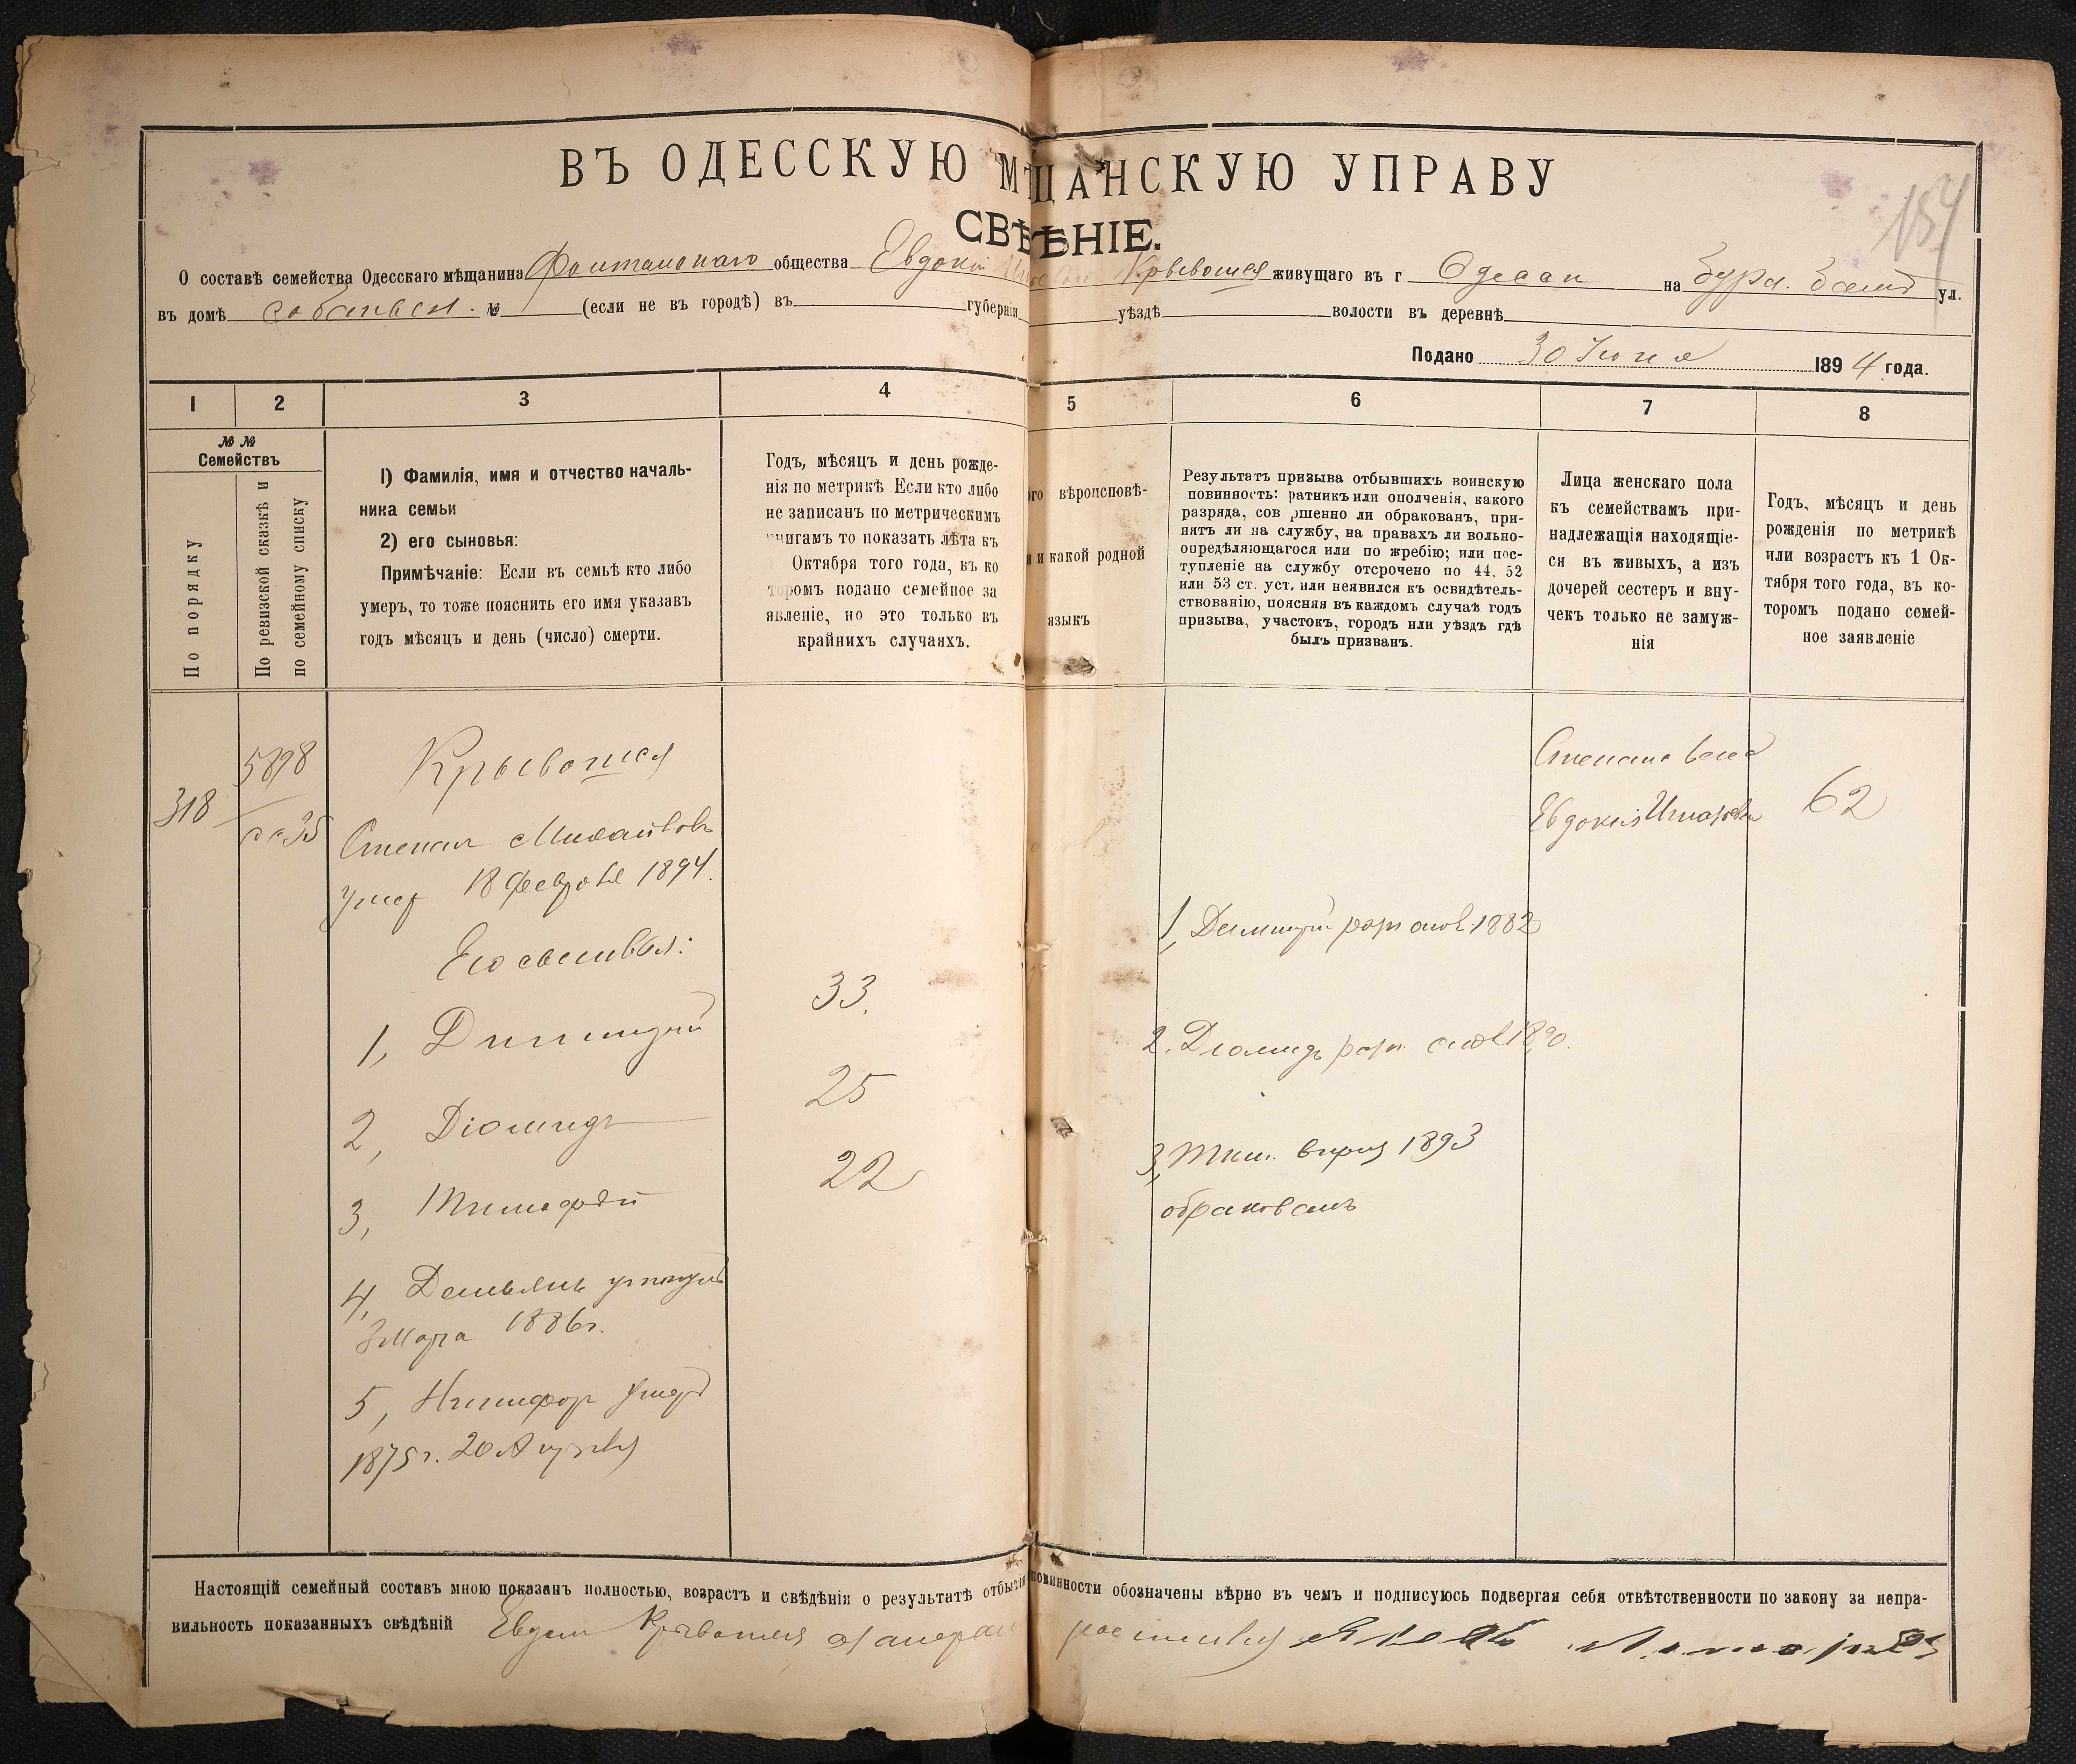 ВЪ ОДЕССКУЮ МѢЩАНСКУЮ УПРАВУ
СВѢДѢНІЕ.
154
О составѣ семейства Одесскаго мѣщанина Фонтанскаго общества Евдокія Кривошея живущаго въ г Одесса на ул.
въ домѣ собствен. № (если не въ городѣ) въ губерніи уѣздѣ волости въ деревнѣ
Подано 30 Іюня 1894 года.
1 2 3 4 5 6 7 8
№ №
Семействъ
По порядку
По ревизской сказкѣ и
по семейному списку
1) Фамилія, имя и отчество началь-
ника семьи
2) его сыновья:
Примѣчаніе: Если въ семьѣ кто либо
умеръ, то тоже пояснить его имя указавъ
годъ мѣсяцъ и день (число) смерти.
Годъ, мѣсяцъ и день рожде-
нія по метрикѣ Если кто либо
не записанъ по метрическимъ
книгамъ то показать лѣта къ
Октября того года, въ ко
торомъ подано семейное за
явленіе, но это только въ
крайнихъ случаяхъ.
вѣроисповѣ-
и какой родной
языкъ
Результатъ призыва отбывшихъ воинскую
повинность: ратникъ или ополченія, какого
разряда, сов ршенно ли обракованъ, при-
нятъ ли на службу, на правахъ ли вольно-
опредѣляющагося или по жребію; или пос-
тупленіе на службу отсрочено по 44. 52
или 53 ст. уст. или неявился къ освидѣтель-
ствованію, поясняя въ каждомъ случаѣ годъ
призыва, участокъ, городъ или уѣздъ гдѣ
былъ призванъ.
Лица женскаго пола
къ семействамъ при-
надлежащія находящіе-
ся въ живыхъ, а изъ
дочерей сестеръ и вну-
чекъ только не замуж-
нія
Годъ, мѣсяцъ и день
рожденія по метрикѣ
или возрастъ къ 1 Ок-
тября того года, въ ко-
торомъ подано семей-
ное заявленіе
318
5898
Крывошея
Степан Михайловъ
Умер 18 февраля 1894.
Его сыновья:
1, Димитрій 33.
2, Діомидъ 25
3, Тимофѣй 22
4, Демьянъ
3 Марта 1886г.
5, Никифор
1875г. 20 Августа
1, Димитрій 1882
2. Диомидъ 1890.
3, Тим. 1893
обракованъ
Степана жена
Евдокія 62
Настоящій семейный составъ мною показанъ полностью, возрастъ и свѣдѣнія о результатѣ отбытія повинности обозначены вѣрно въ чемъ и подписуюсь подвергая себя отвѣтственности по закону за непра-
вильность показанныхъ свѣдѣній Кривошея